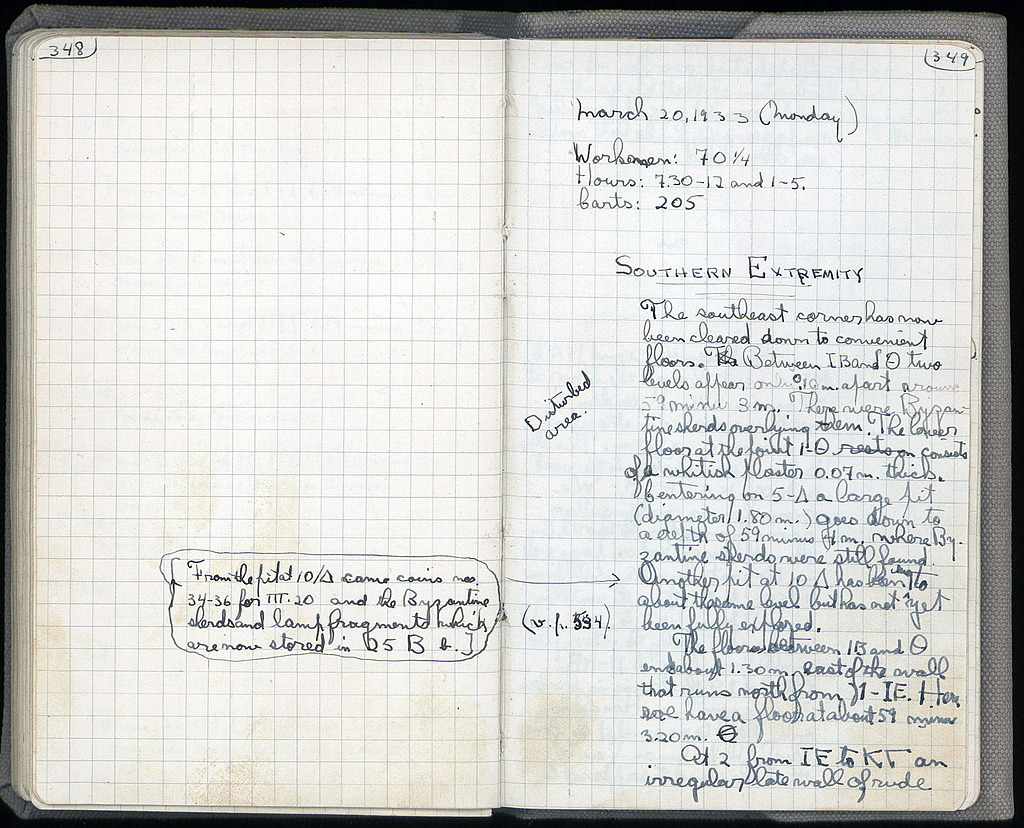 348
From the pit at 10/Δ came coins nos.
34-36 for III.20 and the Byzantine
sherds and lamp fragments which
are now stored in 25 B b.]
349
March 20, 1933 (Monday)
Workmen: 70 1/4
Hours: 7.30-12 and 1-5.
Carts: 205
SOUTHERN EXTREMITY
The southeast corner has now
been cleared down to convenient
floors. Between IB and Θ two
levels appear only 0.10 m. apart around
59 minus 3 m. There were Byzan-
tine sherds overlying them. The lower
floor at the point 1-Θ consists
of a whitish plaster 0.07 m. thick.
Centering on 5-Δ a large pit
(diameter 1.80 m.) goes down to
a depth of 59 minus 4 m. where By-
zantine sherds were still found.
Another pit at 10 Δ has been dug to
about the same level but has not yet
been fully explored.
The floors between IB and Θ
end about 1.30 m. east of the wall
that runs north from 1-IE. Here
we have a floor at about 59 minus
3.20 m.
At 2 from IE to KΓ an
irregular late wall of rude
Disturbed
area.
(v. p. 554)